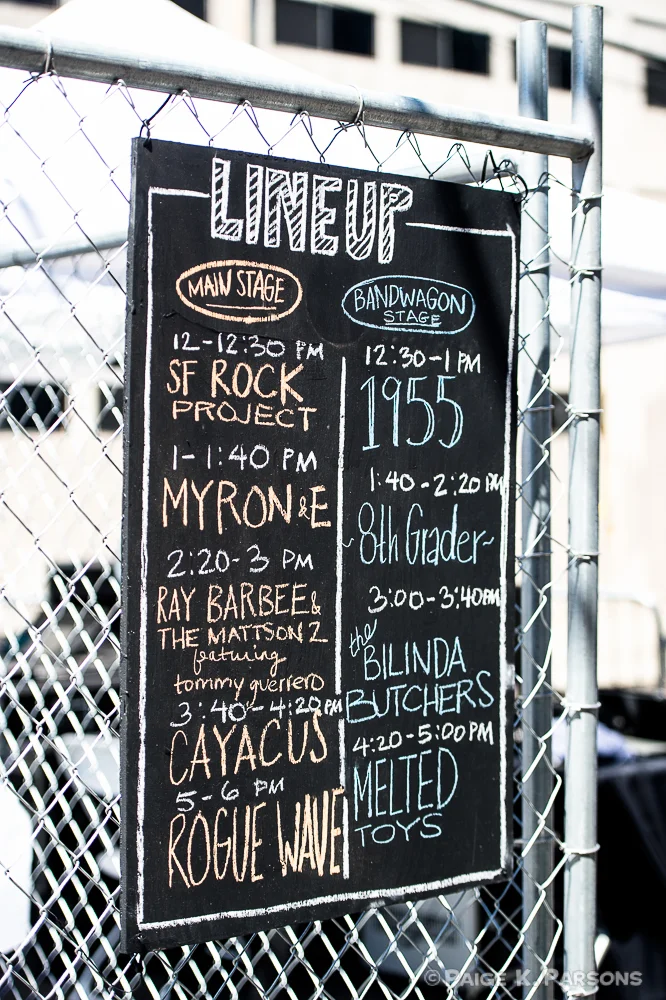 LINEUP
MAIN STAGE
12-12:30 PM
SF ROCK
PROJECT
1-1:40 PM
MYRON & E
2:20-3 PM
RAY BARBEE &
THE MATTSON 2
featuring
tommy guerrero
3:40-4:20 PM
CAYACUS
5-6 PM
ROGUE WAVE
BANDWAGON
STAGE
12:30-1 PM
1955
1:40-2:20 PM
~8th Grader~
3:00-3:40PM
the
BILINDA
BUTCHERS
4:20-5:00 PM
MELTED
TOYS
© PAIGE K. PARSONS